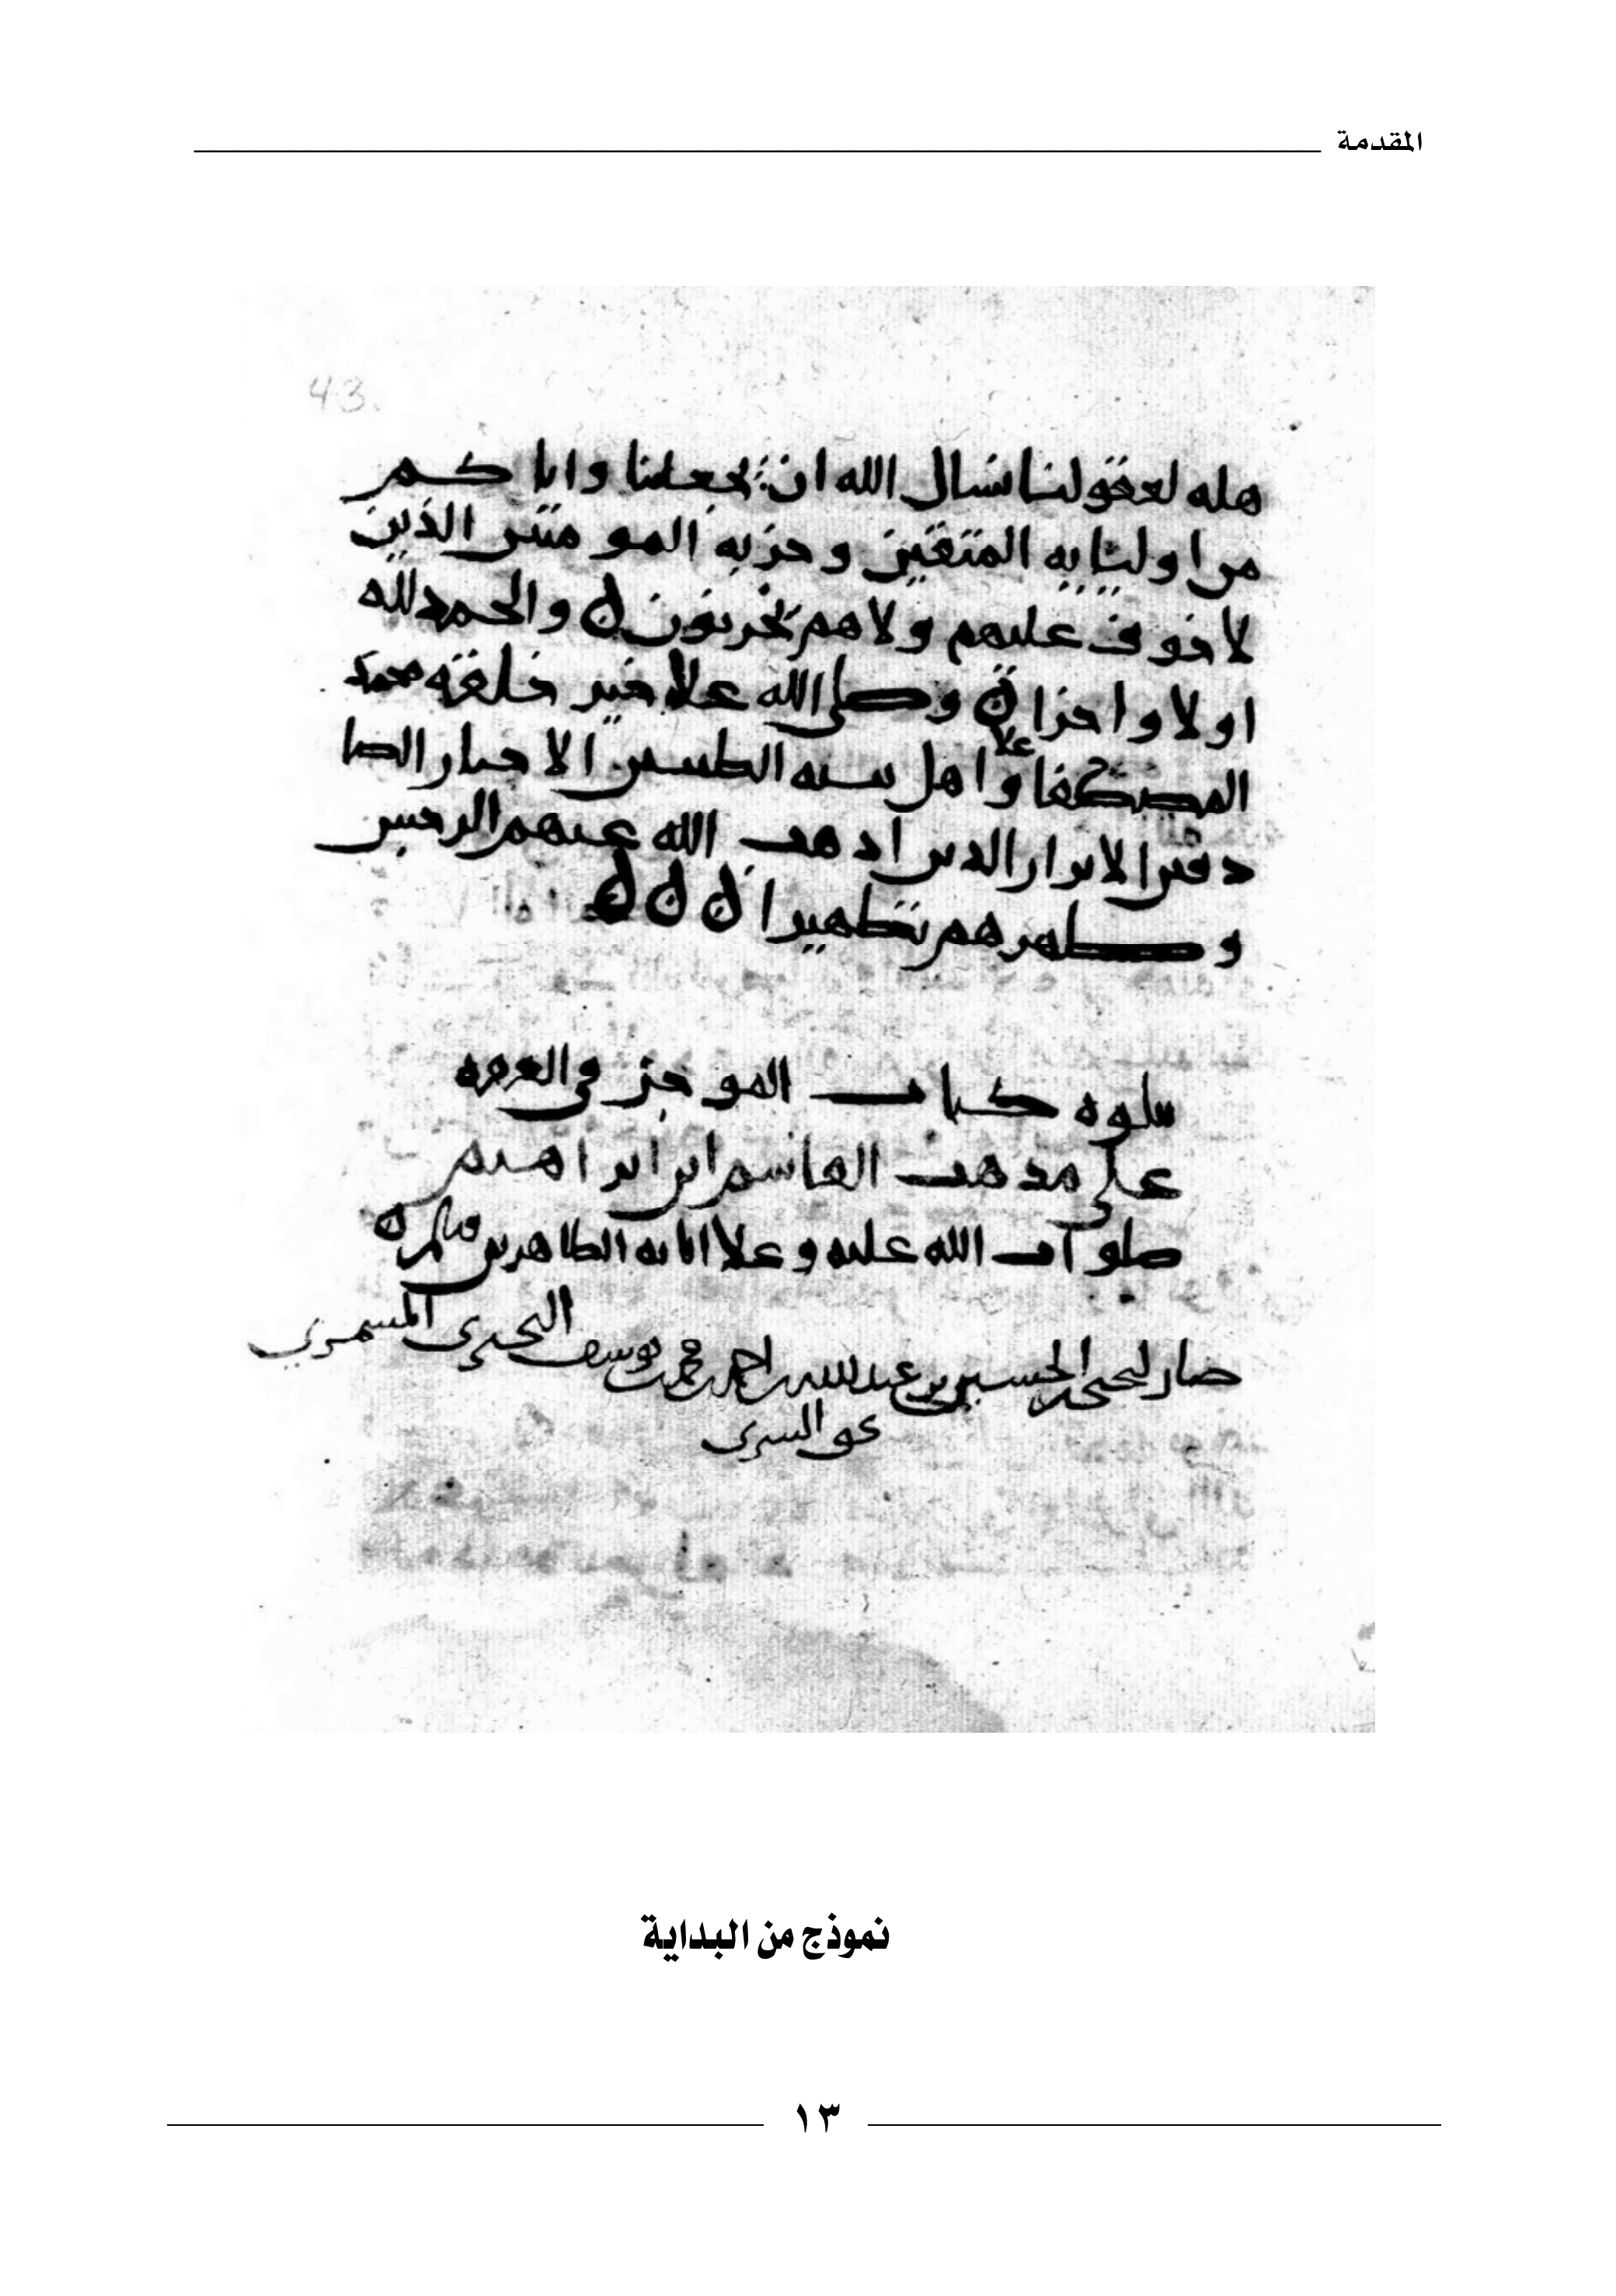 المقدمة
43.
هله لعقولنا نسال الله ان يجعلنا واياكم
من اوليائه المتقين وحزبه المومنين الذين
لا خوف عليهم ولا هم يحزنون والحمد لله
اولا واخرا وصلى الله علا خير خلقه محمد
المصطفا وعلا اهل بيته الطيبين الاخيار الصا
دقين الابرار الدين ادهب الله عنهم الرجس
وطهرهم تطهيرا
يتلوه كتاب الموجز في
على مدهب القاسم ابن ابراهيم
صلوات الله عليه وعلا ابايه الطاهرين
صار الحسين بن عبدالله بن احمد بن محمد بن يوسف
نموذج من البداية
١٣